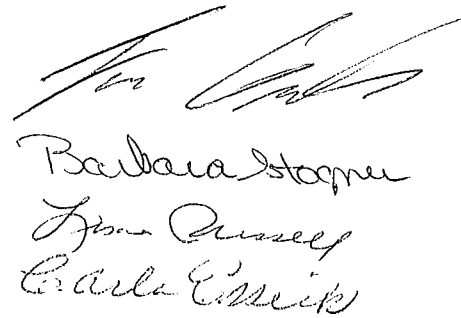 Barbara Stogner
Lisa Russell
Carla Essick